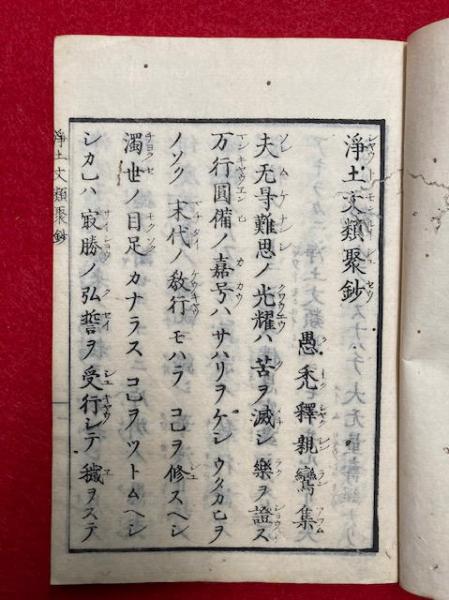 淨土文類聚鈔
愚禿釋親鸞集
夫无㝵難思ノ光耀ハ苦ヲ滅シ樂ヲ證ス
万行圓備ノ嘉号ハサハリヲケシウタカヒヲ
ノソク末代ノ敎行モハラコレヲ修スヘシ
濁世ノ目足カナラスコレヲツトムヘシ
シカレハ冣勝ノ弘誓ヲ受行シテ穢ヲステ
淨土文類聚鈔